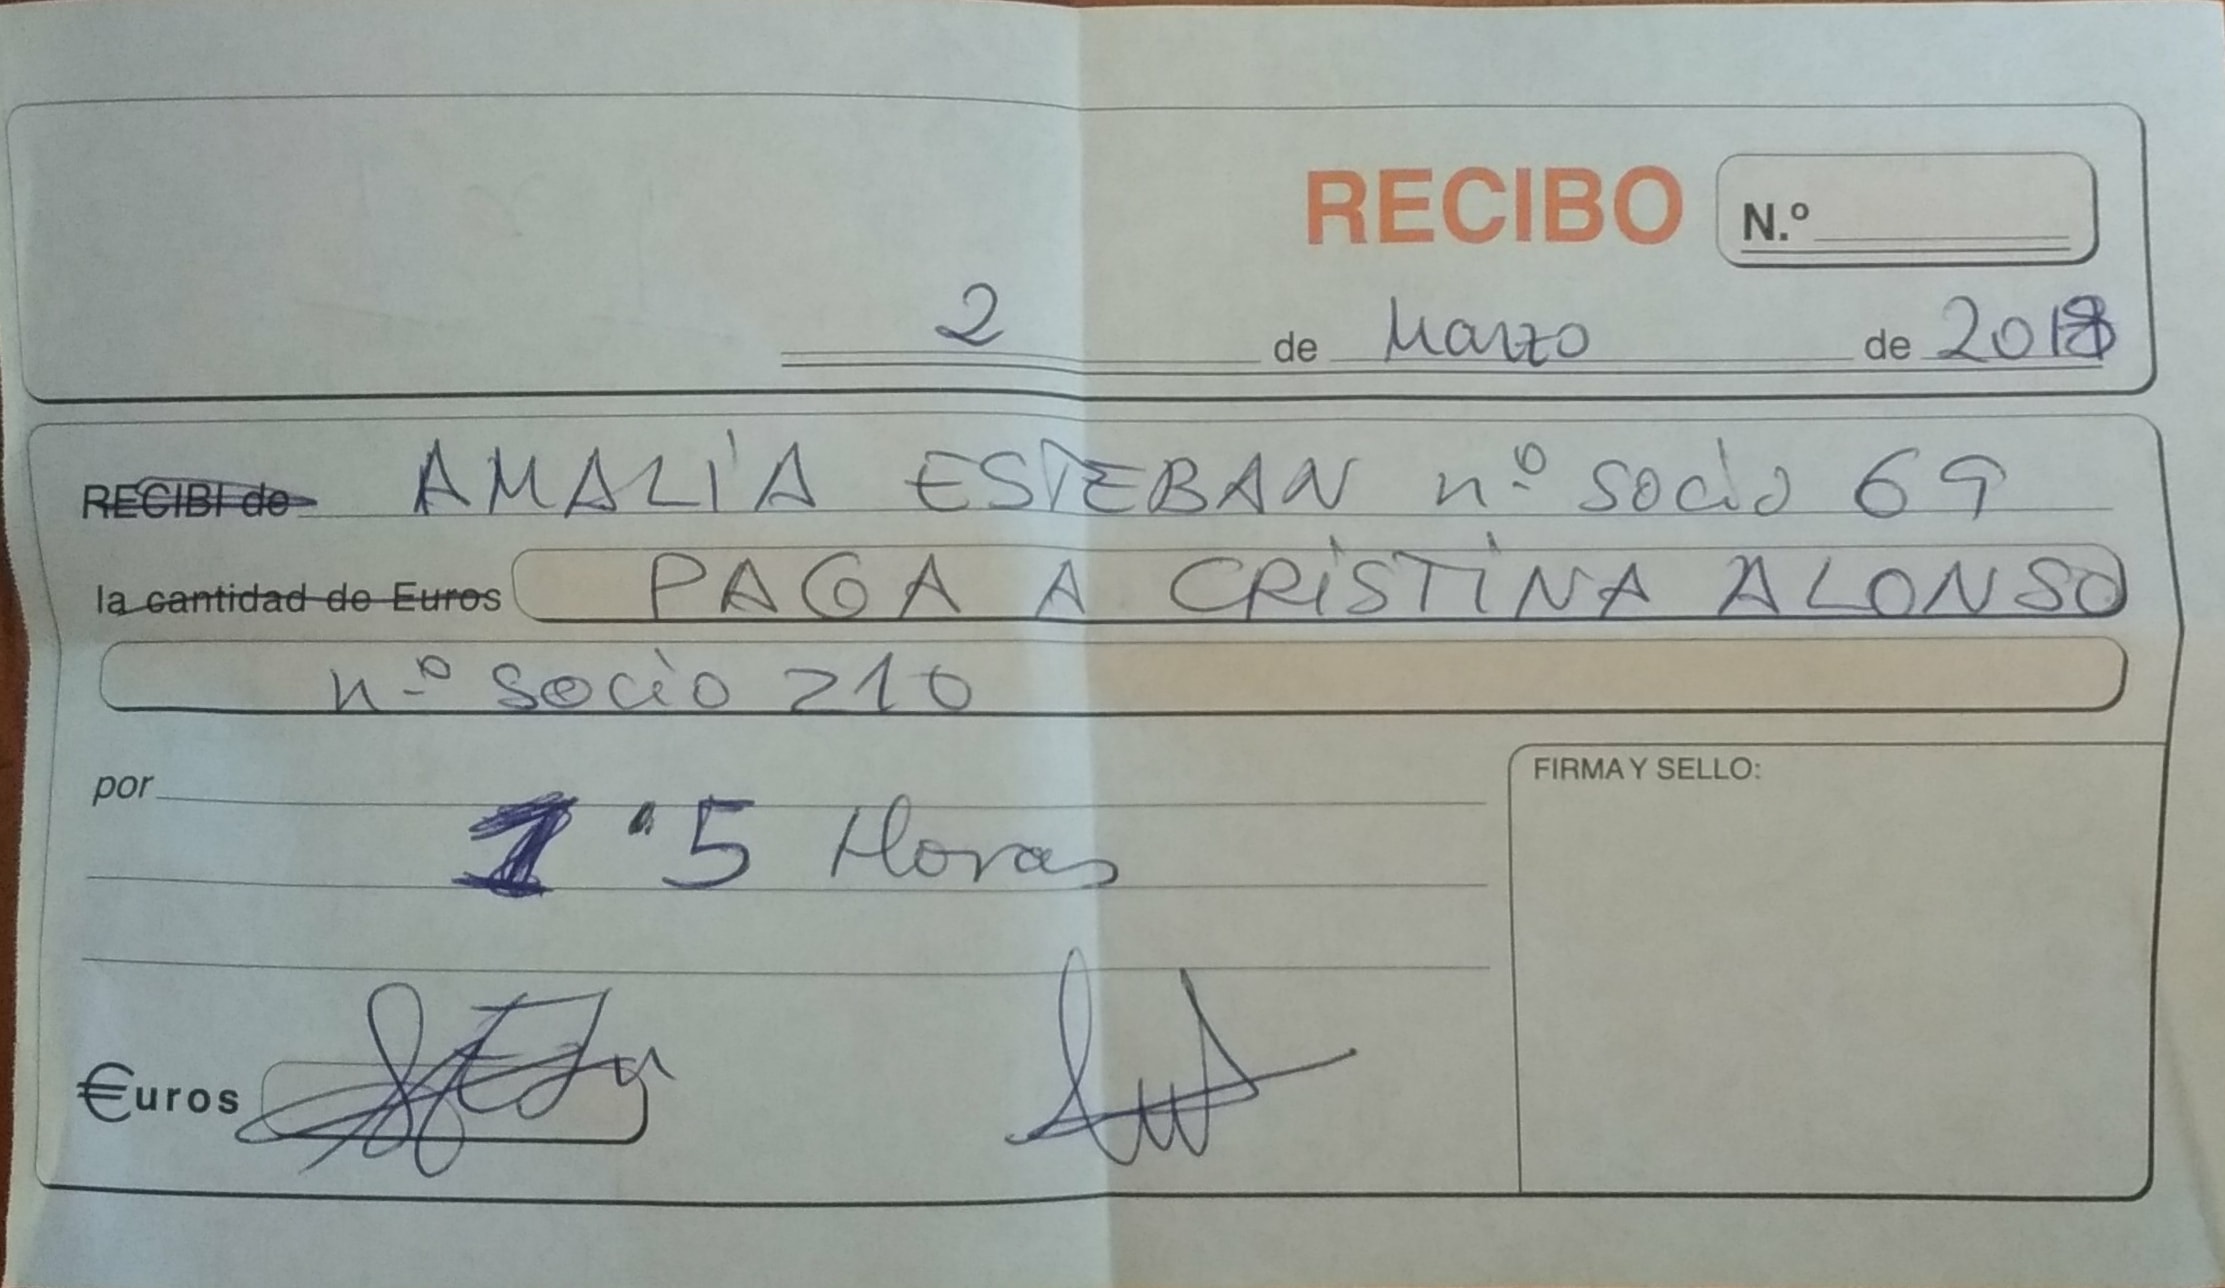 RECIBO N.º
2 de Marzo de 2018
RECIBI de AMALIA ESTEBAN nº socio 69
la cantidad de Euros PAGA A CRISTINA ALONSO
nº socio 210
por
FIRMA Y SELLO:
1'5 Horas
€uros